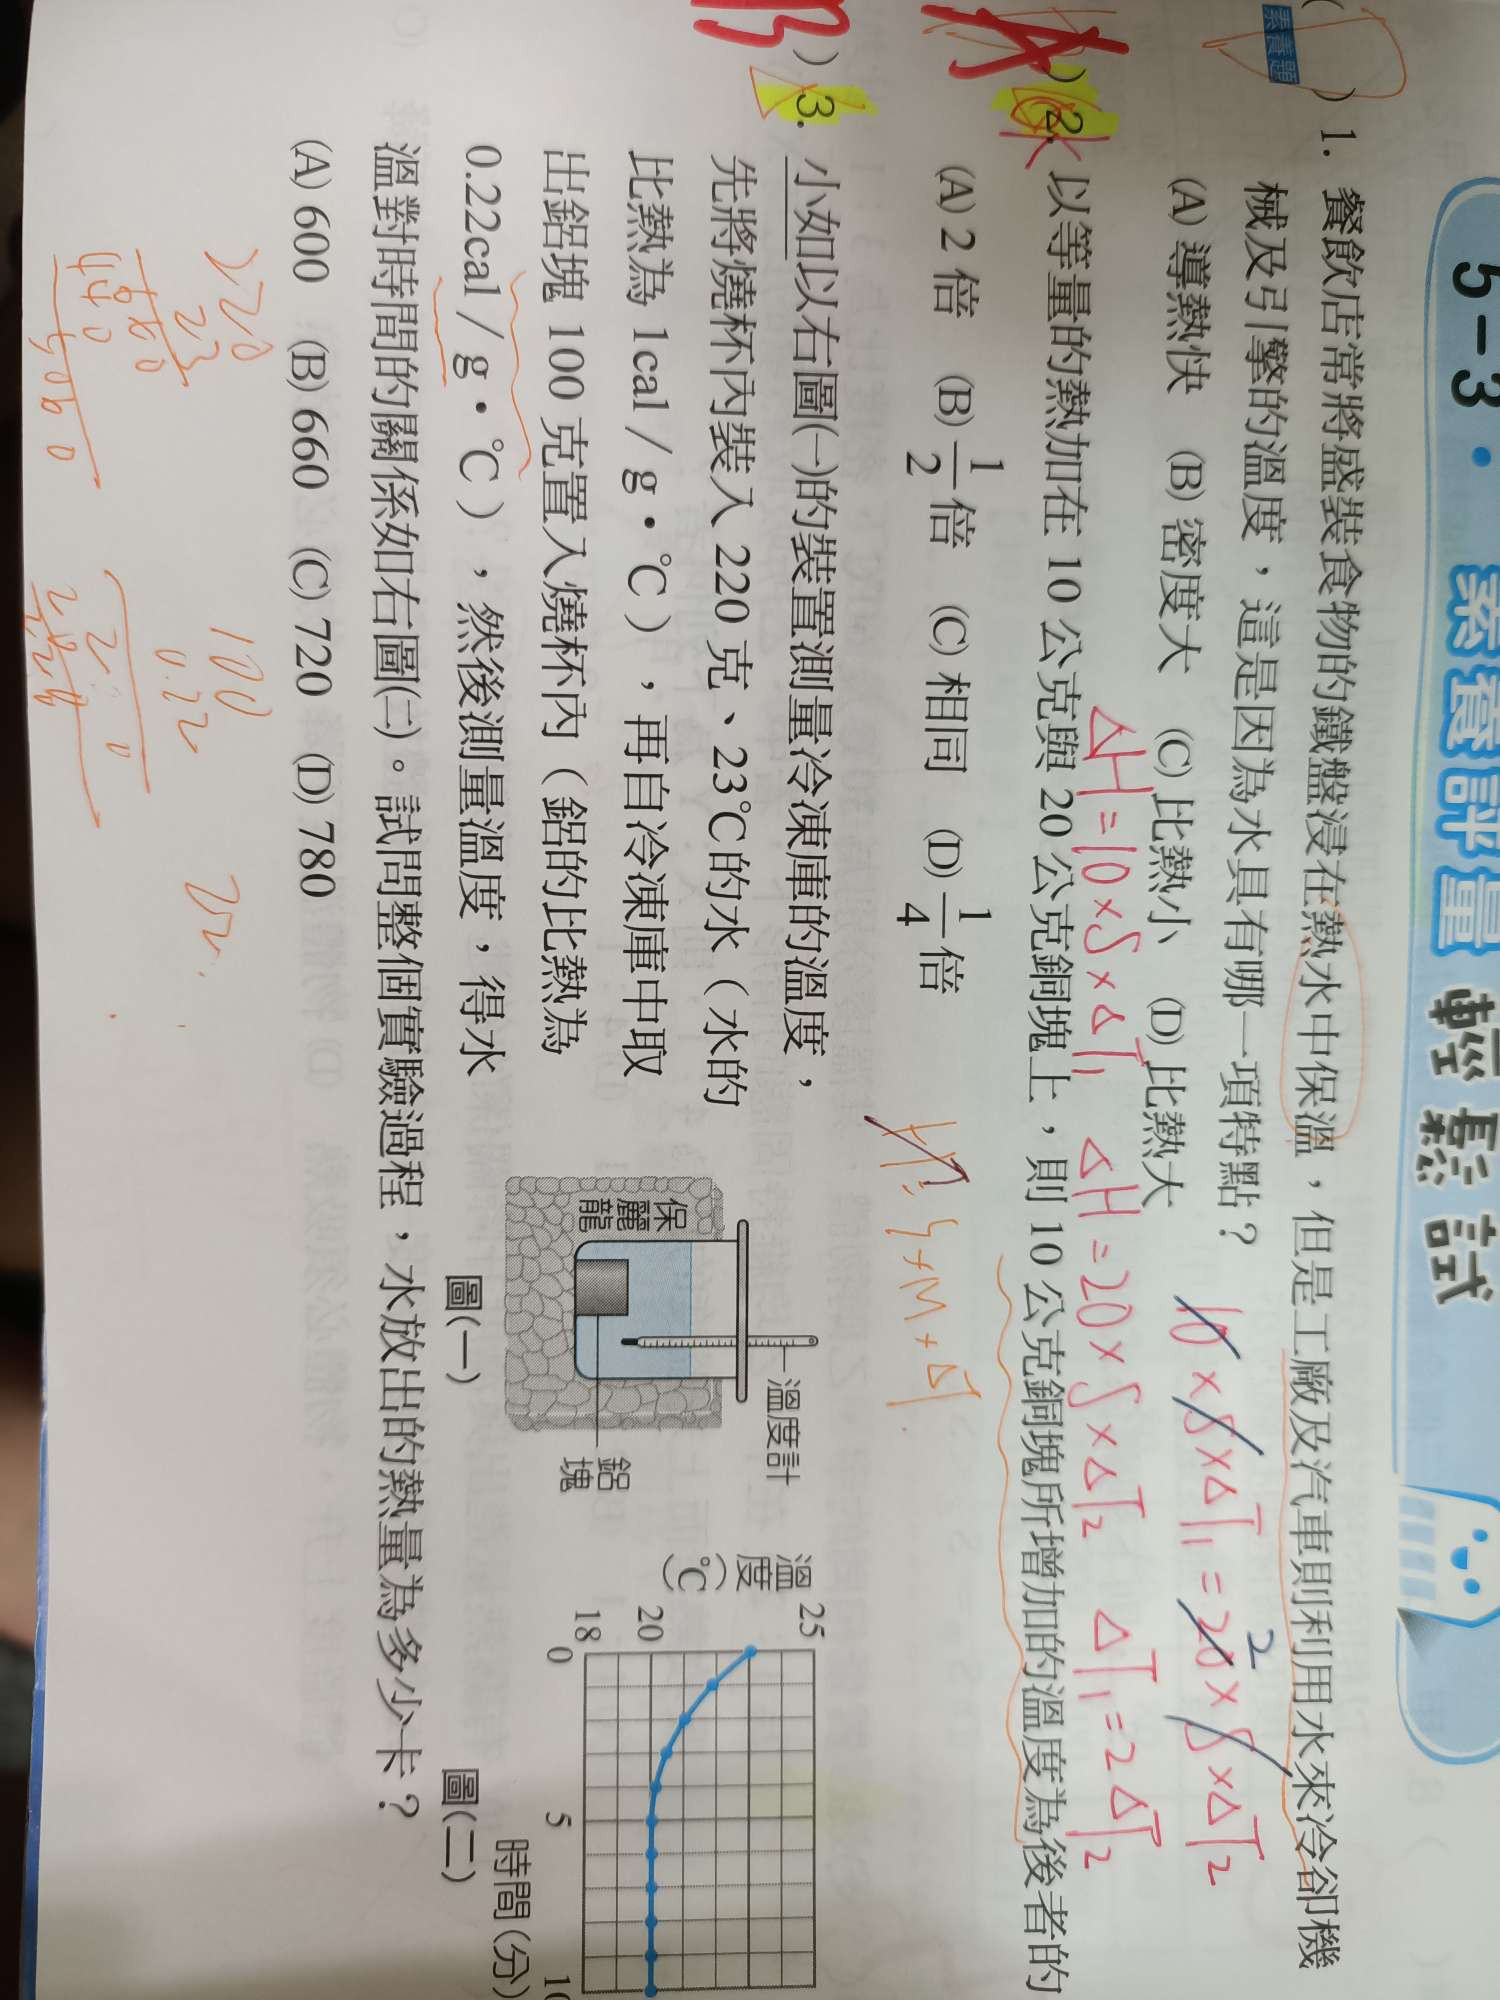 5-3 · 素養評量 輕鬆試
素養題
) 1. 餐飲店常將盛裝食物的鐵盤浸在熱水中保溫,但是工廠及汽車則利用水來冷卻機
械及引擎的溫度,這是因為水具有哪一項特點?
(A) 導熱快 (B) 密度大 (C) 比熱小 (D) 比熱大
10×S×ΔT1 = 20×S×ΔT2
2
ΔH = 10×S×ΔT1 ΔH = 20×S×ΔT2 ΔT1 = 2ΔT2
A
) 2. 以等量的熱加在 10 公克與 20 公克銅塊上,則 10 公克銅塊所增加的溫度為後者的
(A) 2 倍 (B) 1/2 倍 (C) 相同 (D) 1/4 倍
B
) 3. 小如以右圖(一)的裝置測量冷凍庫的溫度,
先將燒杯內裝入 220 克、23℃的水(水的
比熱為 1cal/g・℃),再自冷凍庫中取
出鋁塊 100 克置入燒杯內(鋁的比熱為
0.22cal/g・℃),然後測量溫度,得水
溫對時間的關係如右圖(二)。試問整個實驗過程,水放出的熱量為多少卡?
(A) 600 (B) 660 (C) 720 (D) 780
溫度計
保麗龍
鋁塊
圖(一)
溫度(℃)
25
20
18
0
5
10
時間(分)
圖(二)
220
23
660
440
5060
100
0.22